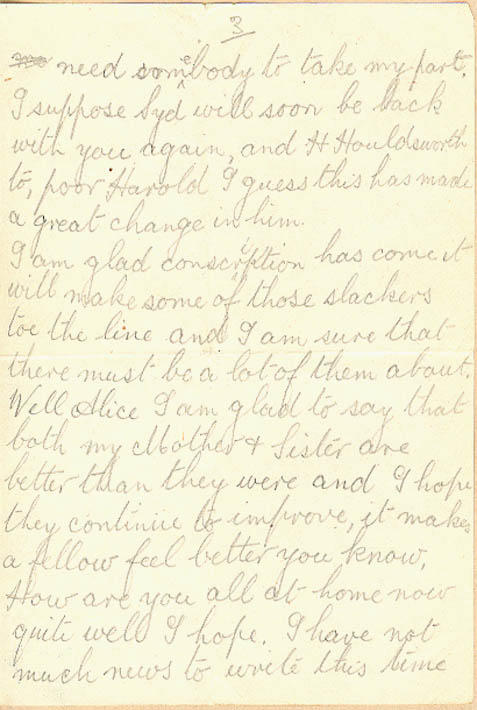 3
need somebody to take my part.
I suppose Syd will soon be back
with you again, and H Houldsworth
to, poor Harold I guess this has made
a great change in him.
I am glad conscription has come it
will make some of those slackers
toe the line and I am sure that
there must be a lot of them about.
Well Alice I am glad to say that
both my Mother & Sister are
better than they were and I hope
they continue to improve, it makes
a fellow feel better you know.
How are you all at home now
quite well I hope. I have not
much news to write this time